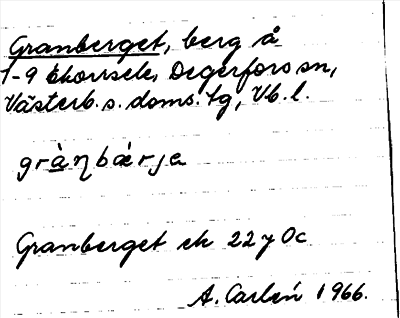 Granberget, berg å
1-9 Ekorrsele, Degerfors sn,
Västerb. s. doms. tg, Vb. l.
gràṇbærja
Granberget ek 22 y 0c
A. Carlén 1966.